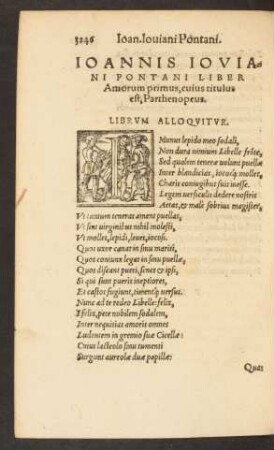 3246 Ioan. Iouiani Pontani.
IOANNIS IOVIA-
NI PONTANI LIBER
Amorum primus, cuius titulus
est, Parthenopeus.
LIBRVM ALLOQVITVR.
I Nunc lepido meo sodali,
Non dura nimium Libelle felice,
Sed qualem teneræ uolunt puellæ
Inter blanditias, iocosq́ molles,
Charis coniugibus suis inesse.
Legem uersiculis dedere nostris
Aetas, & male sobrius magister,
Vt tantum teneras ament puellas,
Vt sint uirginibus nihil molesti,
Vt molles, lepidi, leues, iocosi.
Quos uxor canat in sinu mariti,
Quos coniunx legat in sinu puellæ,
Quos discant pueri, senes & ipsi,
Si qui sunt pueris ineptiores,
Et castos fugiunt, timentq́ uersus.
Nunc ad te redeo Libelle felix,
I felix, pete nobilem sodalem,
Inter nequitias amoris omnes
Ludentem in gremio suæ Cicellæ:
Cuius lacteolo sinu tumenti
Surgunt aureolæ duæ papillæ:
Quas